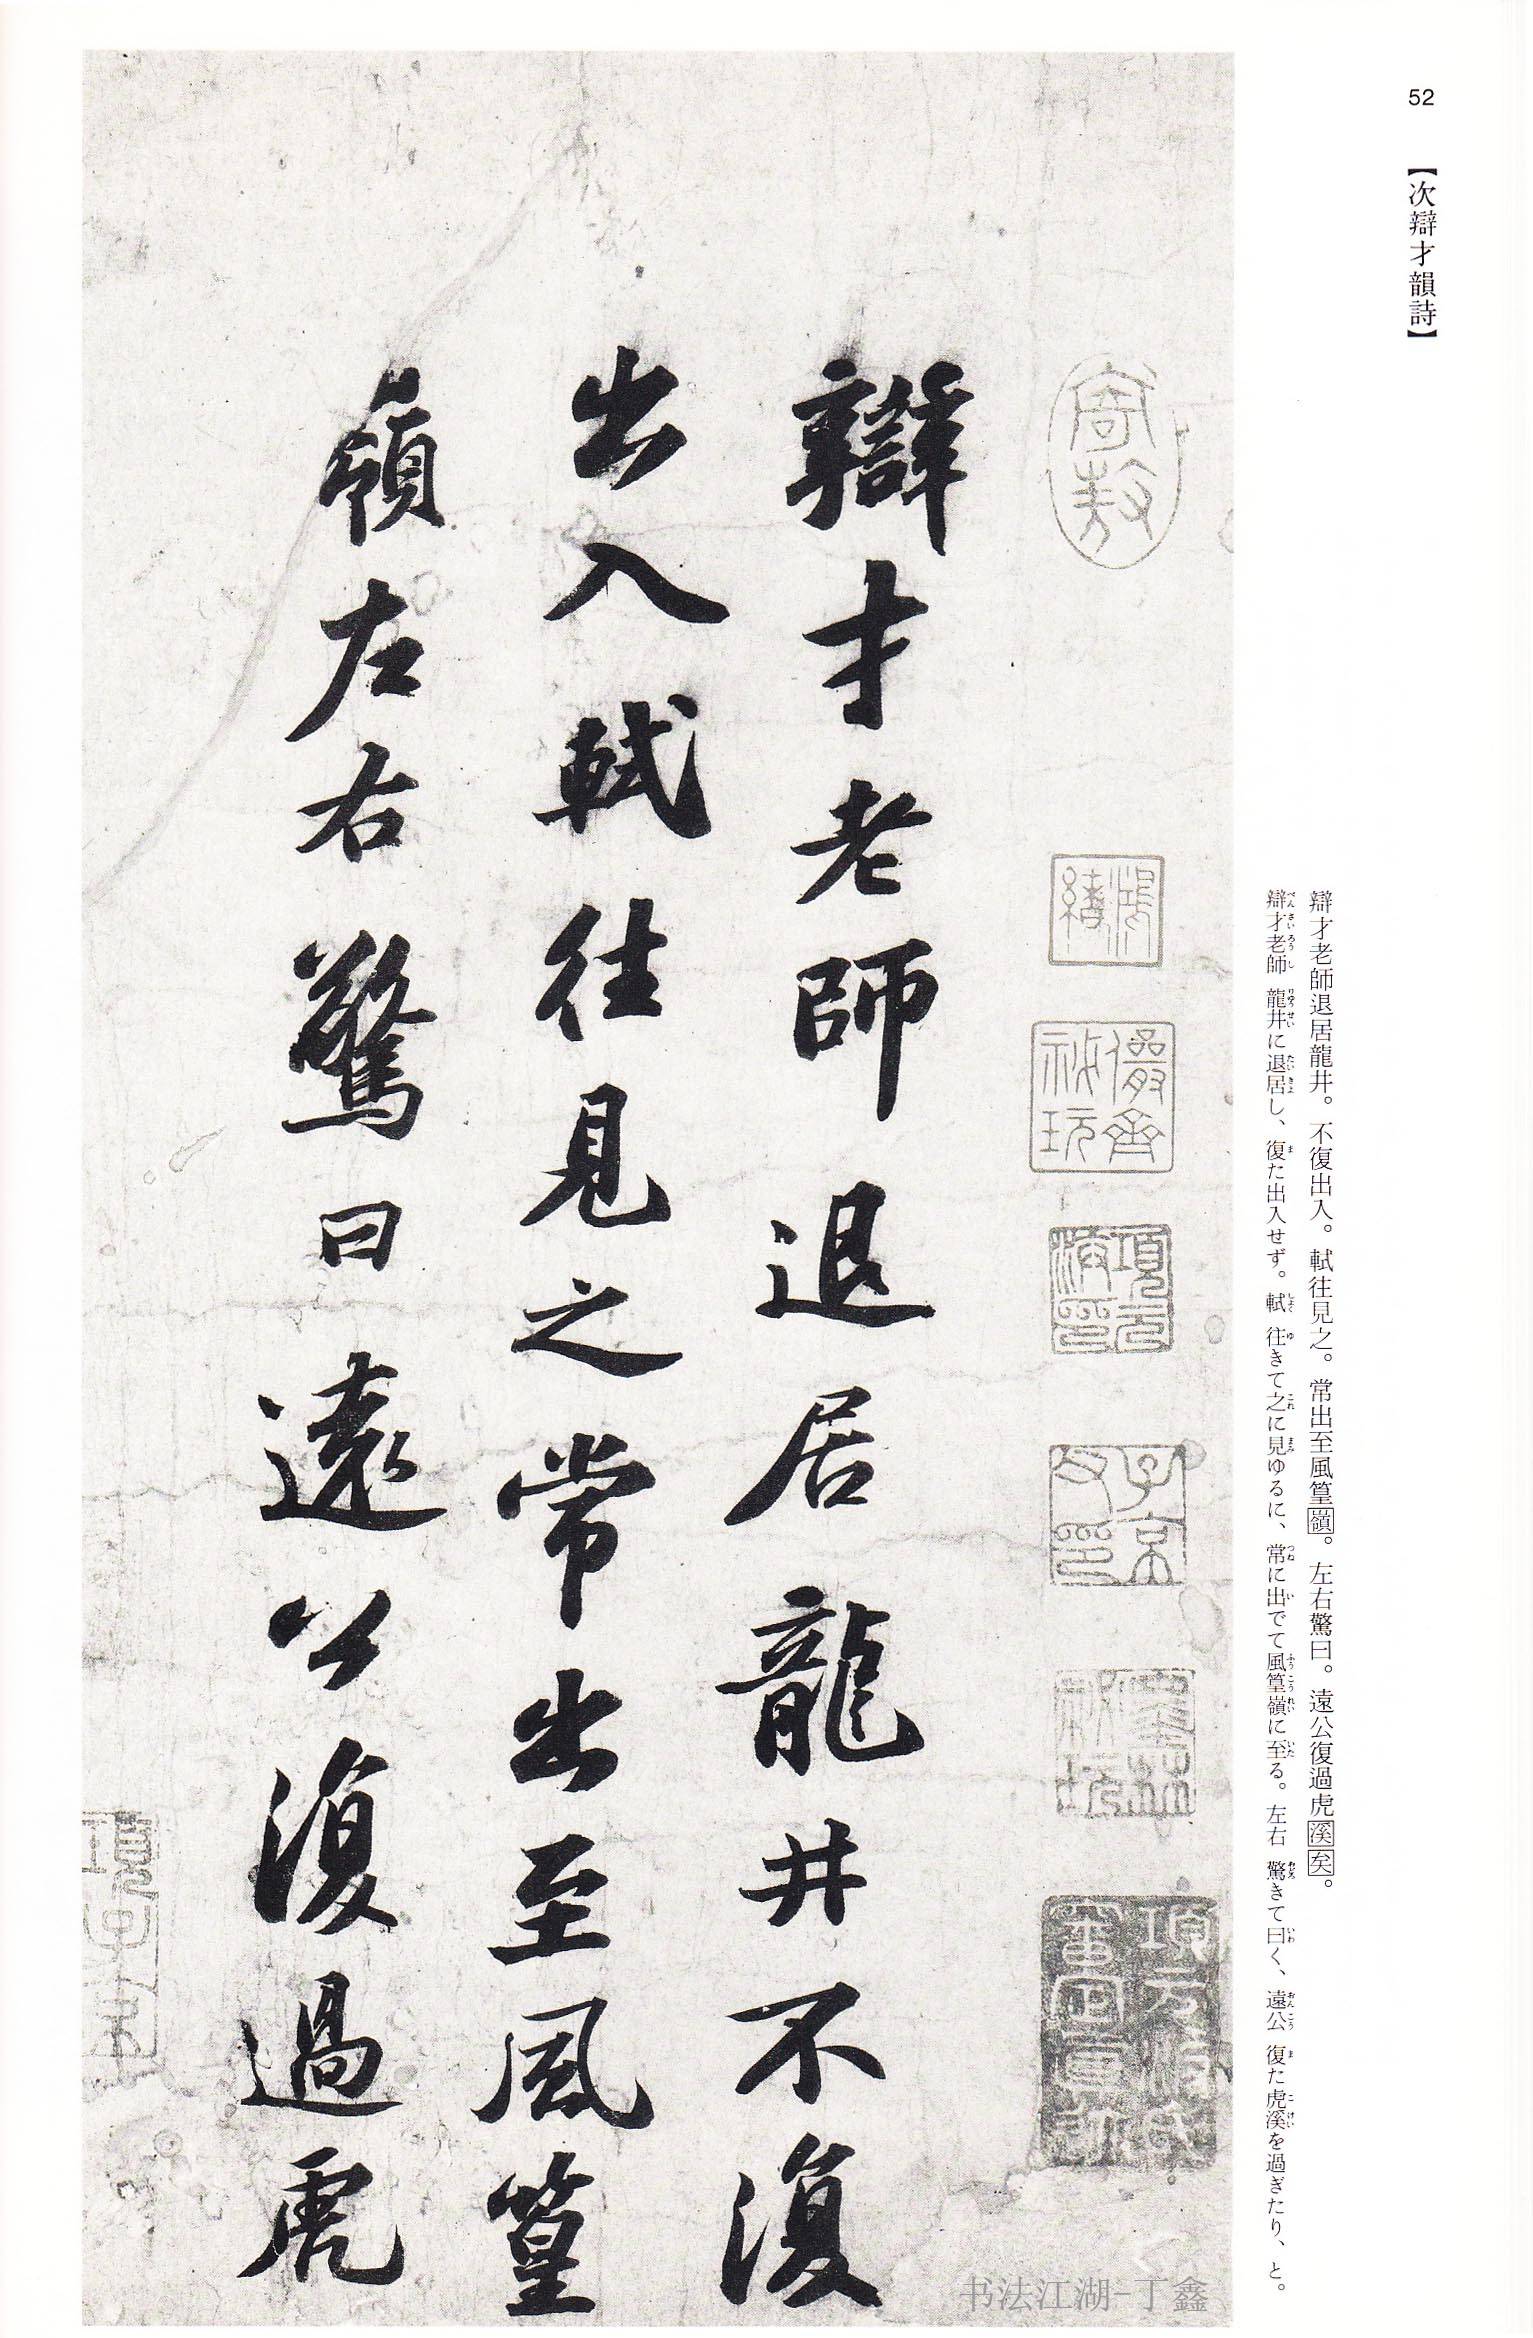 52
【次辯才韻詩】
辯才老師退居龍井。不復出入。軾往見之。常出至風篁嶺。左右驚曰。遠公復過虎溪矣。
辯才老師 龍井に退居し、復た出入せず。軾 往きて之に見ゆるに、常に出でて風篁嶺に至る。左右 驚きて曰く、遠公 復た虎溪を過ぎたり、と。
寄敖
鴻緒
儼齋秘玩
項元汴印
子京父印
墨林秘玩
辯才老師退居龍井不復
出入軾往見之常出至風篁
嶺左右驚曰遠公復過虎
项子京
书法江湖-丁鑫